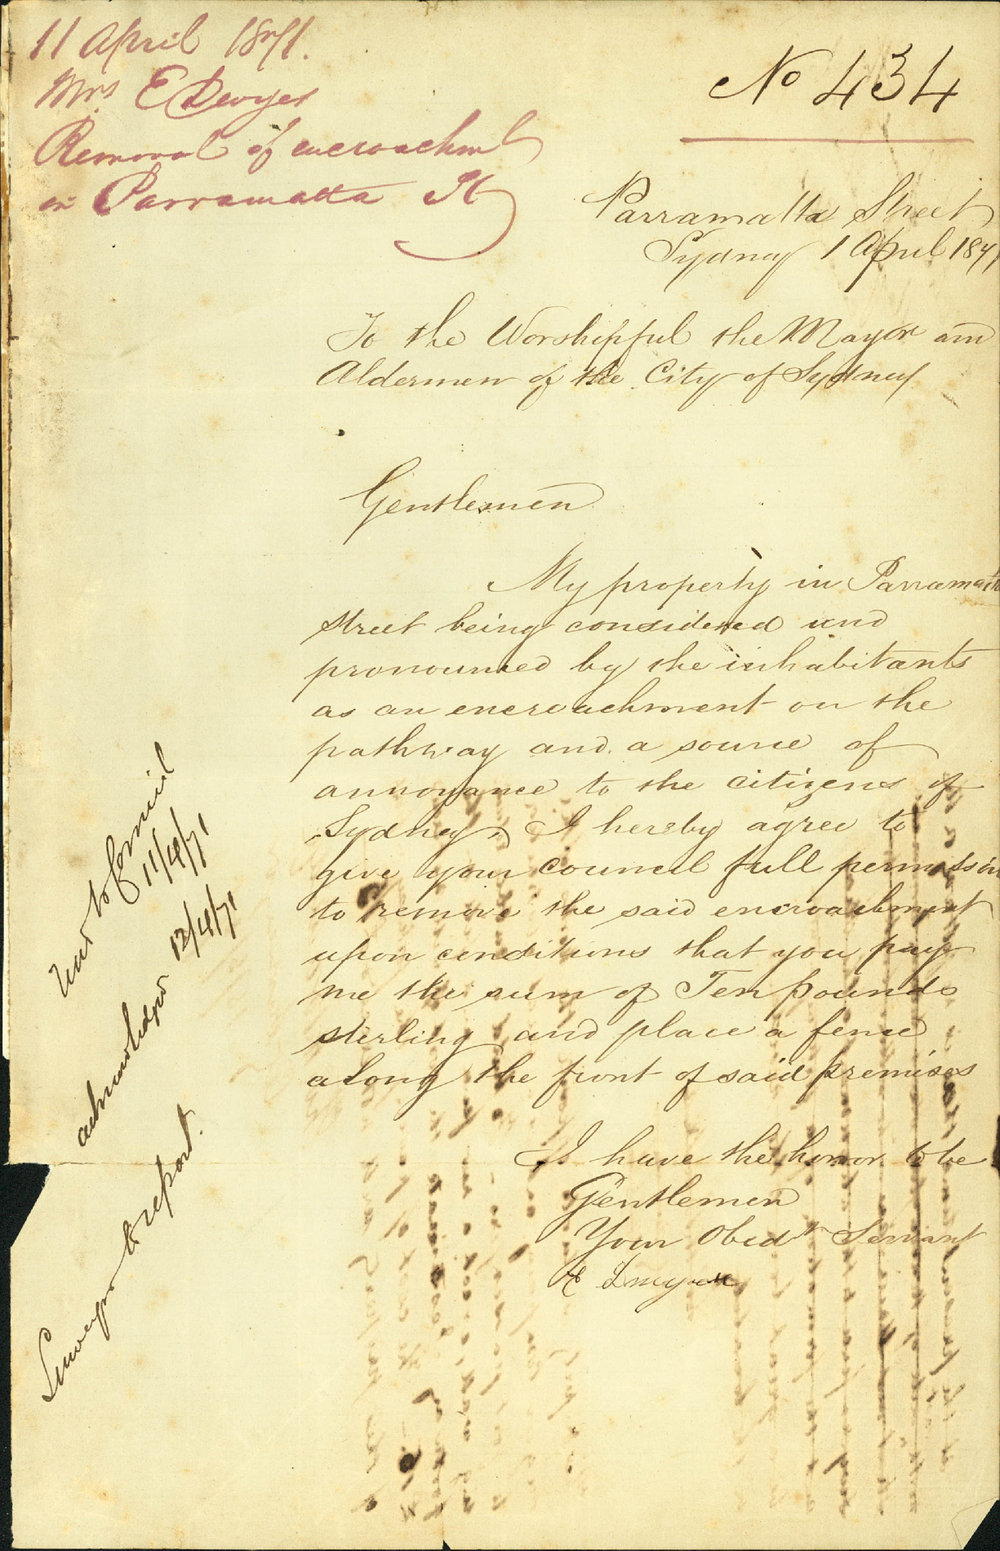 11 April 1871.
Mrs E Dwyer
Removal of encroachment
on Parramatta St
No 434
Parramatta Street
Sydney 1 April 1871
To the Worshipful the Mayor and
Aldermen of the City of Sydney
Gentlemen
My property in Parramatta
street being considered and
pronounced by the inhabitants
as an encroachment on the
pathway and a source of
annoyance to the citizens of
Sydney, I hereby agree to
give your council full permission
to remove the said encroachment
upon conditions that you pay
me the sum of Ten pounds
sterling and place a fence
along the front of said premises
I have the honor to be
Gentlemen
Your Obedt Servant
E Dwyer
to Council
11/4/71
acknowledged 12/4/71
Surveyor to report.